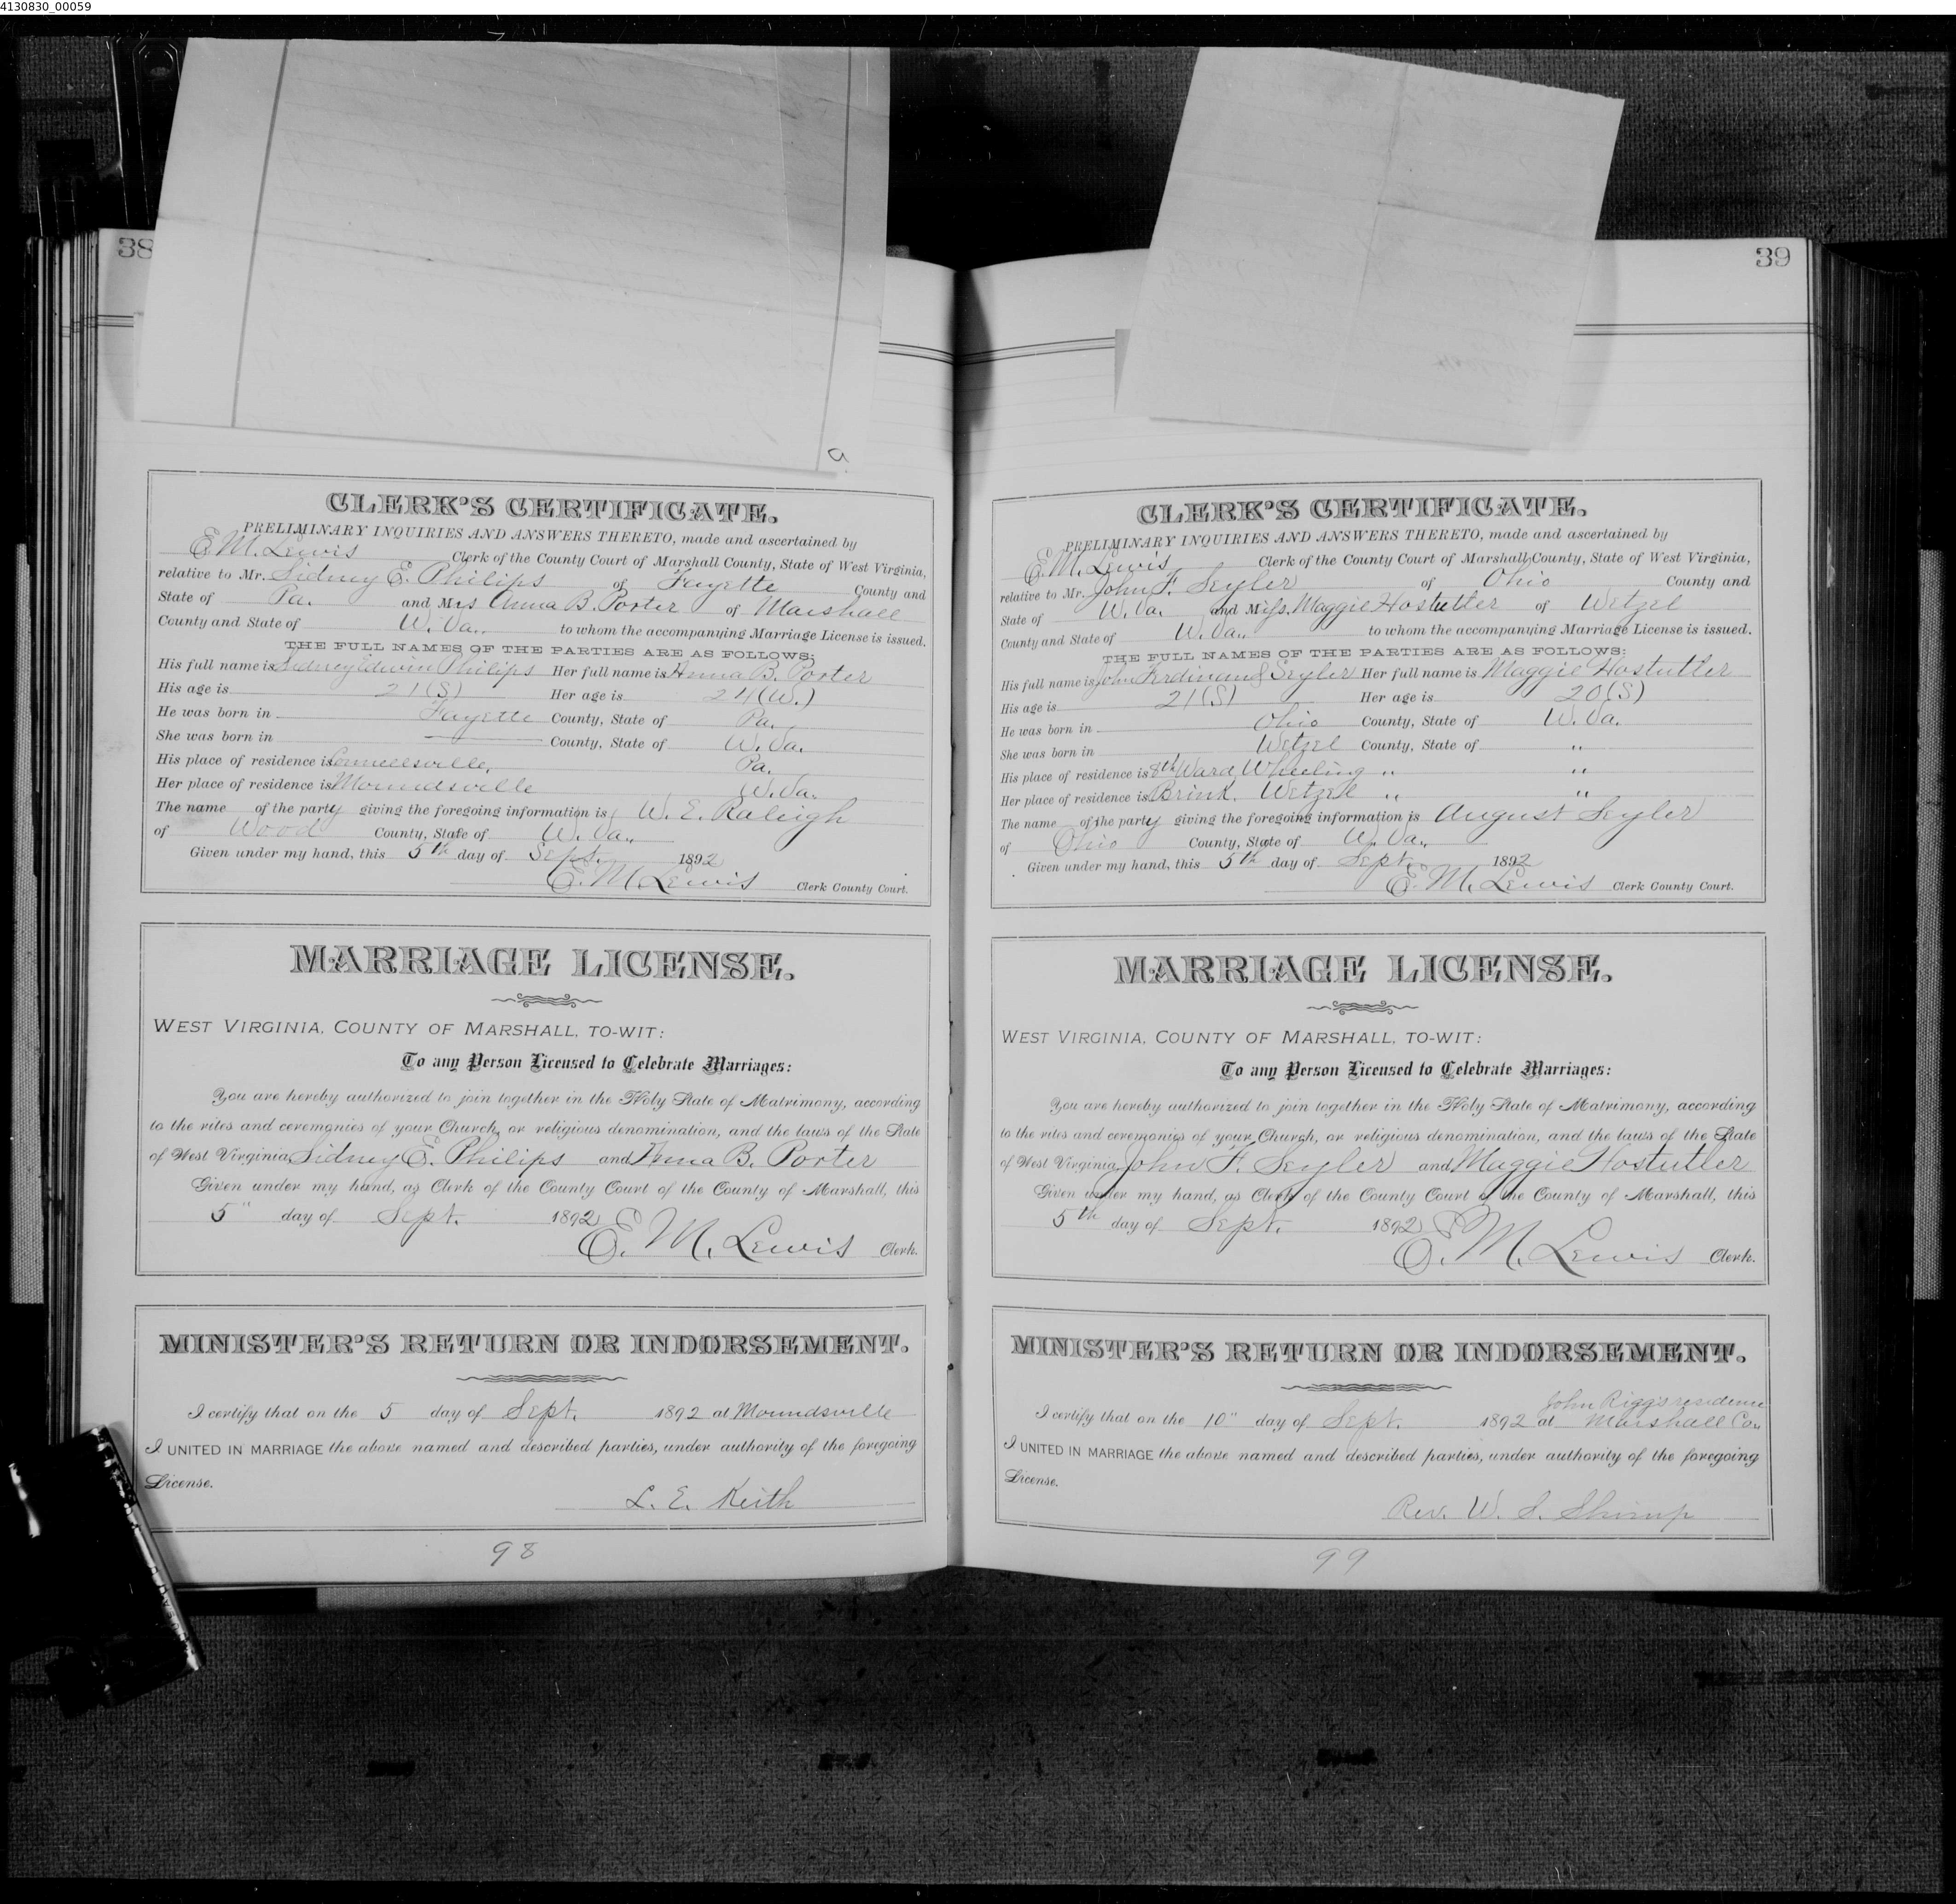 4130830_00059
38
a
CLERK'S CERTIFICATE.
PRELIMINARY INQUIRIES AND ANSWERS THERETO, made and ascertained by
E. M. Lewis Clerk of the County Court of Marshall County, State of West Virginia,
relative to Mr. Sidney E. Philips of Fayette County and
State of Pa. and Mrs Anna B. Porter of Marshall
County and State of W. Va. to whom the accompanying Marriage License is issued.
THE FULL NAMES OF THE PARTIES ARE AS FOLLOWS:
His full name is Sidney Edwin Philips Her full name is Anna B. Porter
His age is 21 (S) Her age is 24 (W.)
He was born in Fayette County, State of Pa.
She was born in — County, State of W. Va.
His place of residence is Connellsville, Pa.
Her place of residence is Moundsville W. Va.
The name of the party giving the foregoing information is W. E. Raleigh
of Wood County, State of W. Va.
Given under my hand, this 5th day of Sept. 1892
E. M. Lewis Clerk County Court.
MARRIAGE LICENSE.
WEST VIRGINIA, COUNTY OF MARSHALL, TO-WIT:
To any Person Licensed to Celebrate Marriages:
You are hereby authorized to join together in the Holy State of Matrimony, according
to the rites and ceremonies of your Church, or religious denomination, and the laws of the State
of West Virginia, Sidney E. Philips and Anna B. Porter
Given under my hand, as Clerk of the County Court of the County of Marshall, this
5" day of Sept. 1892 E. M. Lewis Clerk.
MINISTER'S RETURN OR INDORSEMENT.
I certify that on the 5 day of Sept. 1892 at Moundsville
I UNITED IN MARRIAGE the above named and described parties, under authority of the foregoing
License.
L. E. Keith
98
39
CLERK'S CERTIFICATE.
PRELIMINARY INQUIRIES AND ANSWERS THERETO, made and ascertained by
E. M. Lewis Clerk of the County Court of Marshall County, State of West Virginia,
relative to Mr. John F. Seyler of Ohio County and
State of W. Va. and Miss. Maggie Hostutler of Wetzel
County and State of W. Va. to whom the accompanying Marriage License is issued.
THE FULL NAMES OF THE PARTIES ARE AS FOLLOWS:
His full name is John Ferdinand Seyler Her full name is Maggie Hostutler
His age is 21 (S) Her age is 20 (S)
He was born in Ohio County, State of W. Va.
She was born in Wetzel County, State of "
His place of residence is 8th Ward Wheeling " "
Her place of residence is Brink. Wetzel " "
The name of the party giving the foregoing information is August Seyler
of Ohio County, State of W. Va.
Given under my hand, this 5th day of Sept. 1892
E. M. Lewis Clerk County Court.
MARRIAGE LICENSE.
WEST VIRGINIA, COUNTY OF MARSHALL, TO-WIT:
To any Person Licensed to Celebrate Marriages:
You are hereby authorized to join together in the Holy State of Matrimony, according
to the rites and ceremonies of your Church, or religious denomination, and the laws of the State
of West Virginia, John F. Seyler and Maggie Hostutler
Given under my hand, as Clerk of the County Court of the County of Marshall, this
5th day of Sept. 1892 E. M. Lewis Clerk.
MINISTER'S RETURN OR INDORSEMENT.
John Rigg's residence
I certify that on the 10" day of Sept. 1892 at Marshall Co.
I UNITED IN MARRIAGE the above named and described parties, under authority of the foregoing
License.
Rev. W. S. Shimp
99